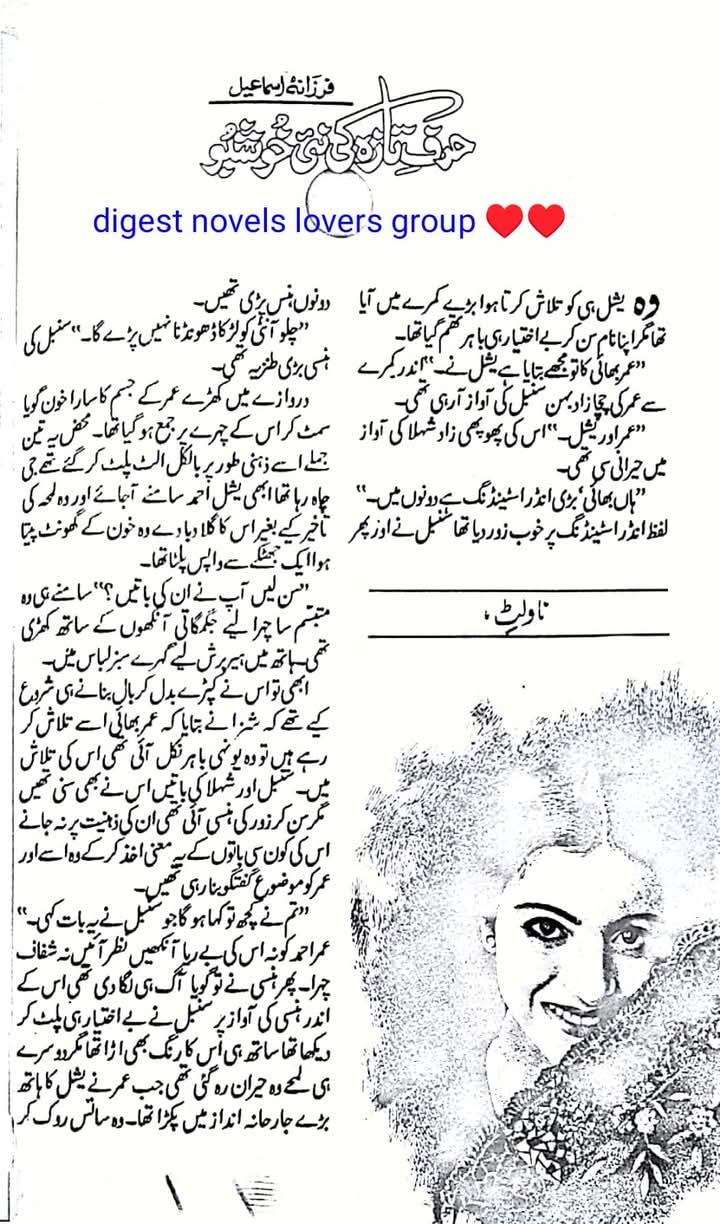 فرزانہ اسماعیل
حرفِ تازہ کی نئی خُوشبُو
digest novels lovers group ❤️❤️
وہ یشل ہی کو تلاش کرتا ہوا بڑے کمرے میں آیا
تھا مگر اپنا نام سن کر بے اختیار ہی باہر تھم گیا تھا۔
”عمر بھائی کا تو مجھے بتایا ہے یشل نے۔“ اندر کمرے
سے عمر کی چچا زاد بہن سنبل کی آواز آ رہی تھی۔
”عمر اور یشل۔“ اس کی پھوپھی زاد شہلا کی آواز
میں حیرانی سی تھی۔
”ہاں بھائی‘ بڑی انڈر اسٹینڈنگ ہے دونوں میں۔“
لفظ انڈر اسٹینڈنگ پر خوب زور دیا تھا سنبل نے اور پھر
ناولٹ،
دونوں ہنس پڑی تھیں۔
”چلو آنٹی کو لڑکا ڈھونڈنا نہیں پڑے گا۔“ سنبل کی
ہنسی بڑی طنزیہ تھی۔
دروازے میں کھڑے عمر کے جسم کا سارا خون گویا
سمٹ کر اس کے چہرے پر جمع ہو گیا تھا۔ محض یہ تین
جملے اسے ذہنی طور پر بالکل الٹ پلٹ کر گئے تھے جی
چاہ رہا تھا ابھی یشل احمد سامنے آ جائے اور وہ لمحہ کی
تاخیر کیے بغیر اس کا گلا دبا دے وہ خون کے گھونٹ پیتا
ہوا ایک جھٹکے سے واپس پلٹا تھا۔
”سن لیں آپ نے ان کی باتیں؟“ سامنے ہی وہ
متبسم سا چہرا لیے جگمگاتی آنکھوں کے ساتھ کھڑی
تھی۔ ہاتھ میں ہیر برش لیے گہرے سبز لباس میں۔
ابھی تو اس نے کپڑے بدل کر بال بنانے ہی شروع
کیے تھے کہ شزا نے بتایا کہ عمر بھائی اسے تلاش کر
رہے ہیں تو وہ یونہی باہر نکل آئی تھی اس کی تلاش
میں۔ سنبل اور شہلا کی باتیں اس نے بھی سنی تھیں
مگر سن کر زور کی ہنسی آئی تھی ان کی ذہنیت پر نہ جانے
اس کی کون سی باتوں کے یہ معنی اخذ کر کے وہ اسے اور
عمر کو موضوع گفتگو بنا رہی تھیں۔
”تم نے کچھ تو کہا ہو گا جو سنبل نے یہ بات کہی۔“
عمر احمد کو نہ اس کی بے ریا آنکھیں نظر آئیں نہ شفاف
چہرا۔ پھر ہنسی نے تو گویا آگ ہی لگا دی تھی اس کے
اندر ہنسی کی آواز پر سنبل نے بے اختیار ہی پلٹ کر
دیکھا تھا ساتھ ہی اس کا رنگ بھی اڑا تھا مگر دوسرے
ہی لمحے وہ حیران رہ گئی تھی جب عمر نے یشل کا ہاتھ
بڑے جارحانہ انداز میں پکڑا تھا۔ وہ سانس روک کر